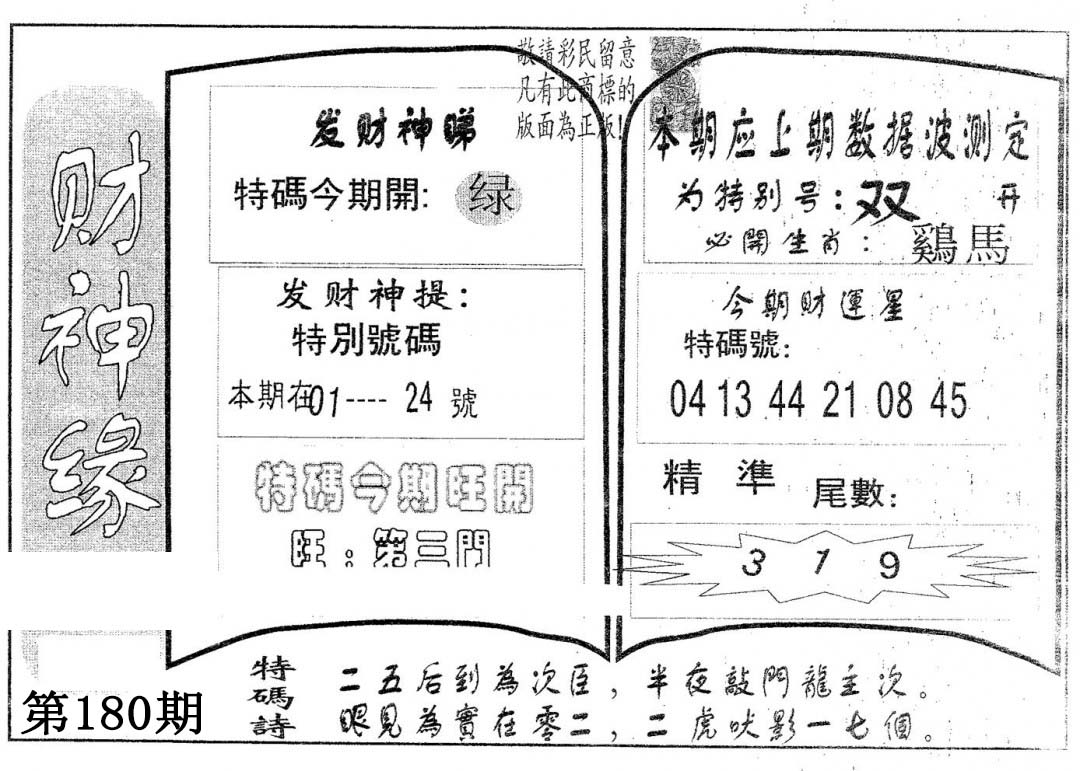 敬請彩民留意
凡有此商標的
版面為正版!
财神緣
发财神睇
特碼今期開: 绿
发财神提:
特別號碼
本期在01---- 24 號
特碼今期旺開
旺:第三門
本期应上期数据波测定
为特别号:双 开
必開生肖: 鷄馬
今期财運星
特碼號:
04 13 44 21 08 45
精 準 尾數:
3 1 9
第180期
特碼詩
二五后到為次臣,半夜敲門龍主次。
眼見為實在零二,二虎吠影一七個。